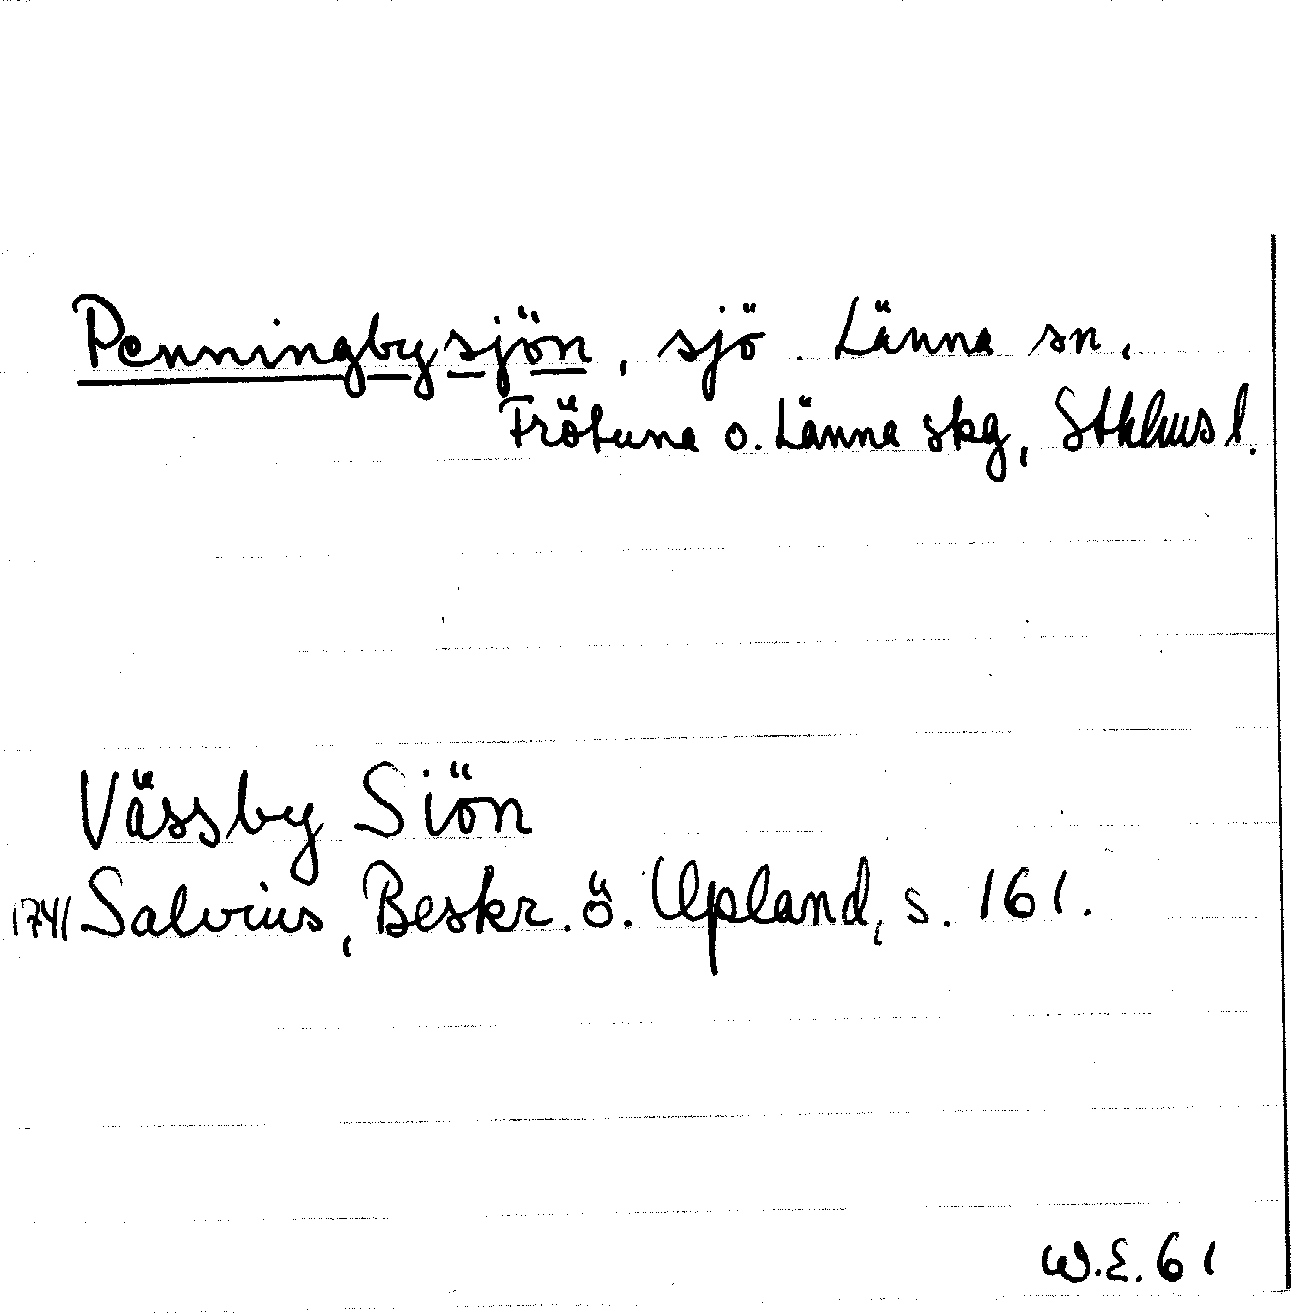 Penningbysjön, sjö. Länna sn,
Frötuna o. Länna skg, Sthlms l.
Vässby Siön
1741 Salvius, Beskr. ö. Upland, s. 161.
W.E. 61